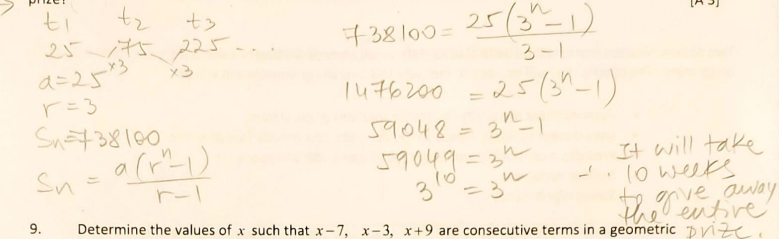 prize?
[A 3]
t1 t2 t3
25 75 225 ...
×3 ×3
a=25
r=3
Sn=738100
Sn = a(r^n-1)
r-1
738100 = 25(3^n-1)
3-1
1476200 = 25(3^n-1)
59048 = 3^n-1
59049 = 3^n
3^10 = 3^n
∴ It will take
10 weeks
to give away
the entire
prize.
9. Determine the values of x such that x-7, x-3, x+9 are consecutive terms in a geometric